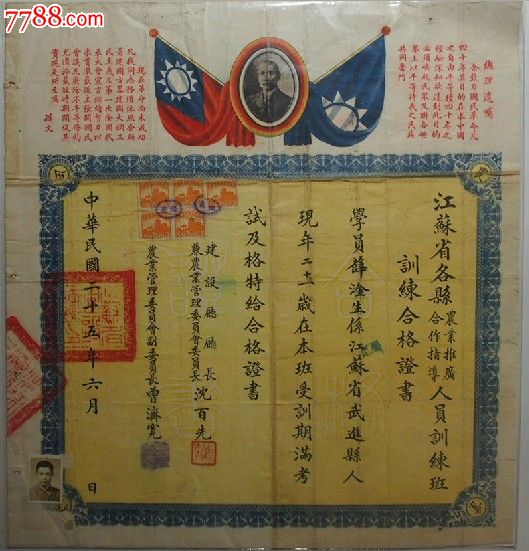 7788.com
總理遺囑
余致力國民革命凡
四十年其目的在求中國
之自由平等積四十年之
經驗深知欲達到此目的
必須喚起民眾及聯合世
界上以平等待我之民族
共同奮鬥
現在革命尚未成功
凡我同志務須依照余所
著建國方略建國大綱三
民主義及第一次全國代
表大會宣言繼續努力以
求貫徹最近主張開國民
會議及廢除不平等條約
尤須於最短期間促其
實現是所至囑
孫文
江蘇省各縣農業推廣合作指導人員訓練班
訓練合格證書
學員薛淦生係江蘇省武進縣人
現年二十二歲在本班受訓期滿考
試及格特給合格證書
建設廳廳長
兼農業管理委員會委員長沈百先
農業管理委員會副委員長曾濟寬
中華民國二十五年六月 日